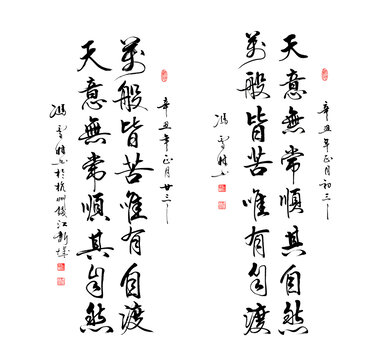 辛丑年正月初三
天意無常順其自然
萬般皆苦唯有自渡
馮雪
辛丑年正月廿三
萬般皆苦唯有自渡
天意無常順其自然
馮雪 书於杭州錢江新城